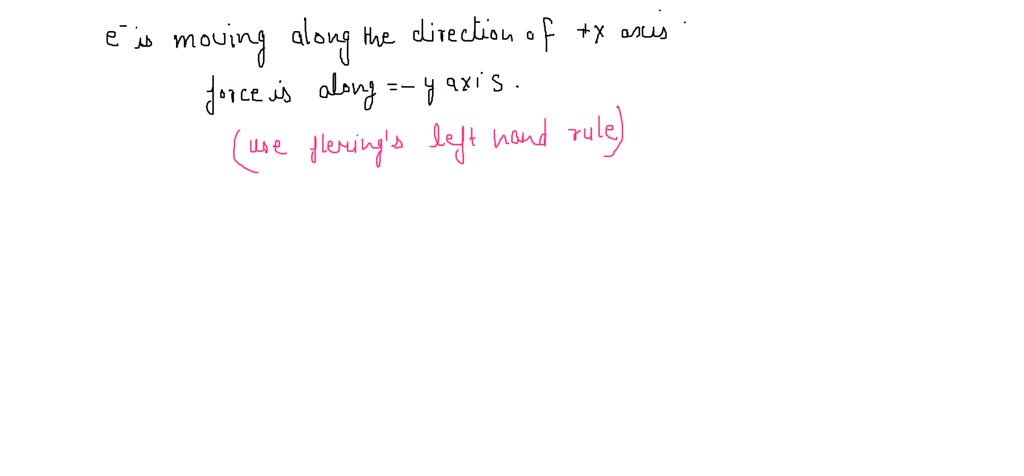 e⁻ is moving along the direction of +x axis.
force is along = - y axis.
(use flering's left hand rule)